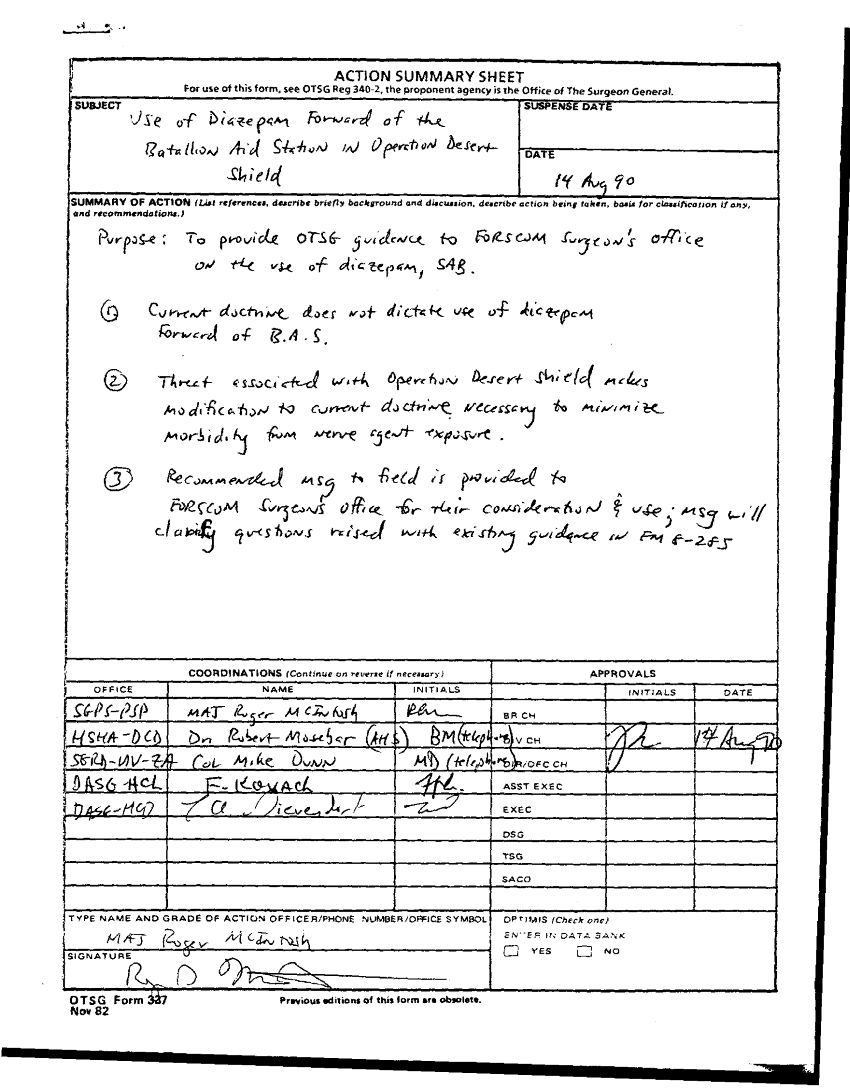 ACTION SUMMARY SHEET
For use of this form, see OTSG Reg 340-2, the proponent agency is the Office of The Surgeon General.
SUBJECT
Use of Diazepam Forward of the
Batallion Aid Station in Operation Desert
Shield
SUSPENSE DATE
DATE
14 Aug 90
SUMMARY OF ACTION (List references, describe briefly background and discussion, describe action being taken, basis for classification if any,
and recommendations.)
Purpose: To provide OTSG guidence to FORSCOM Surgeon's office
on the use of diazepam, SAB.
① Current doctrine does not dictate use of diazepam
Forward of B.A.S.
② Threat associated with Operation Desert Shield makes
modification to current doctrine necessary to minimize
morbidity from nerve agent exposure.
③ Recommended msg to field is provided to
FORSCOM Surgeon's office for their consideration & use; msg will
clarify questions raised with existing guidance in FM 8-285
COORDINATIONS (Continue on reverse if necessary) APPROVALS
OFFICE NAME INITIALS INITIALS DATE
SGPS-PSP MAJ Roger McIntosh BR CH
HSHA-DCD Dr. Robert Mosebar (AHS) BM (telephone) V CH 14 Aug 90
SGRD-UV-ZA Col Mike Dunn MD (telephone) DIR/OFC CH
DASG-HCL F. Kovach ASST EXEC
EXEC
DSG
TSG
SACO
TYPE NAME AND GRADE OF ACTION OFFICER/PHONE NUMBER/OFFICE SYMBOL
MAJ Roger McIntosh
OPTIMIS (Check one)
ENTER IN DATA BANK
YES NO
SIGNATURE
OTSG Form 327 Previous editions of this form are obsolete.
Nov 82